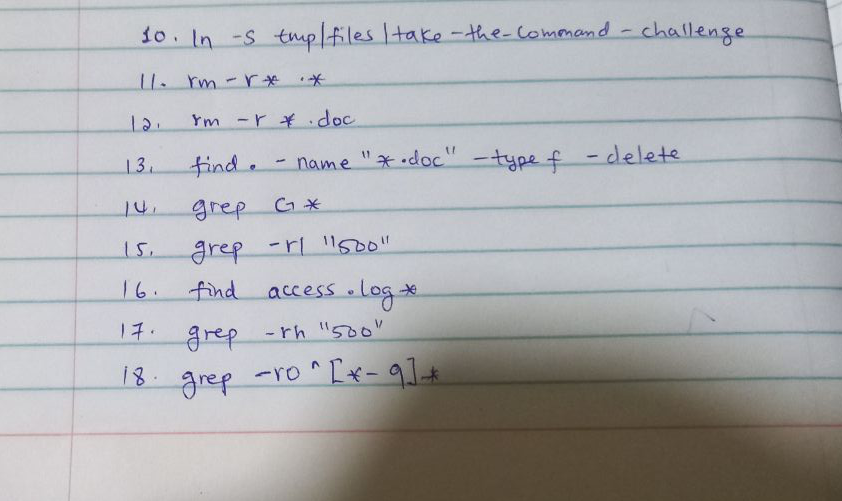 10. ln -s tmp/files/take-the-command-challenge
11. rm -r * .*
12. rm -r *.doc
13. find . -name "*.doc" -type f -delete
14. grep G*
15. grep -rl "500"
16. find access.log*
17. grep -rh "500"
18. grep -ro ^[*-9]*